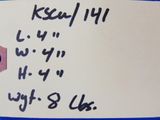 KSCW/141
L. 4"
W. 4"
H. 4"
wgt. 8 Lbs.